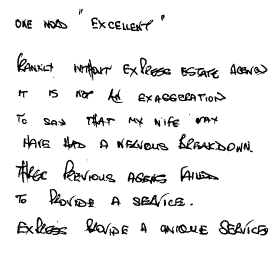 ONE WORD "EXCELLENT"
FRANKLY WITHOUT EXPRESS ESTATE AGENCY
IT IS NOT AN EXAGGERATION
TO SAY THAT MY WIFE MAY
HAVE HAD A NERVOUS BREAKDOWN.
THREE PREVIOUS AGENTS FAILED
TO PROVIDE A SERVICE.
EXPRESS PROVIDE A UNIQUE SERVICE